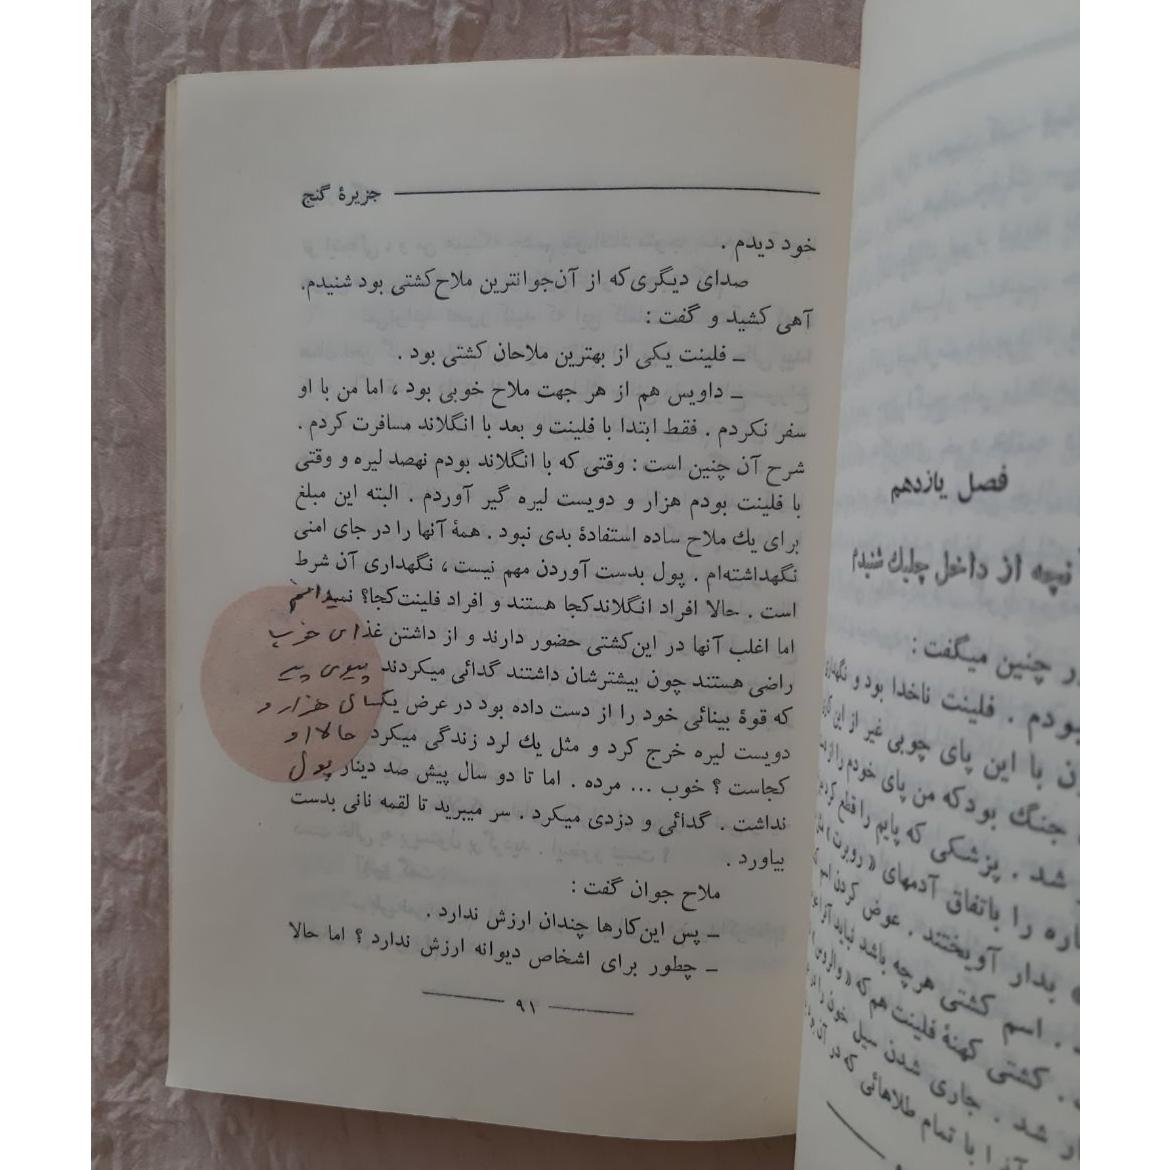 جزیرهٔ گنج
خود دیدم .
صدای دیگری که از آن جوانترین ملاح کشتی بود شنیدم.
آهی کشید و گفت :
ـ فلینت یکی از بهترین ملاحان کشتی بود .
ـ داویس هم از هر جهت ملاح خوبی بود ، اما من با او
سفر نکردم . فقط ابتدا با فلینت و بعد با انگلاند مسافرت کردم .
شرح آن چنین است : وقتی که با انگلاند بودم نهصد لیره و وقتی
با فلینت بودم هزار و دویست لیره گیر آوردم . البته این مبلغ
برای یك ملاح ساده استفادهٔ بدی نبود . همهٔ آنها را در جای امنی
نگهداشته‌ام . پول بدست آوردن مهم نیست ، نگهداری آن شرط
است . حالا افراد انگلاند کجا هستند و افراد فلینت کجا؟ نمیدانم
اما اغلب آنها در این کشتی حضور دارند و از داشتن غذای خوب
راضی هستند چون بیشترشان داشتند گدائی میکردند پیوی پیر
که قوهٔ بینائی خود را از دست داده بود در عرض یکسال هزار و
دویست لیره خرج کرد و مثل یك لرد زندگی میکرد حالا او
کجاست ؟ خوب ... مرده . اما تا دو سال پیش صد دینار پول
نداشت . گدائی و دزدی میکرد . سر میبرید تا لقمه نانی بدست
بیاورد .
ملاح جوان گفت :
ـ پس این کارها چندان ارزش ندارد .
ـ چطور برای اشخاص دیوانه ارزش ندارد ؟ اما حالا
۹۱
فصل یازدهم
نچه از داخل چلیك شنیدم
ر چنین میگفت :
بودم . فلینت ناخدا بود و نگهدار
ن با این پای چوبی غیر از این کار
جنگ بود که من پای خودم را از
شد . پزشکی که پایم را قطع کرد
اره را باتفاق آدمهای « روبرت »
بدار آویختند . عوض کردن اسم
. اسم کشتی هرچه باشد نباید آنرا
. کشتی کهنهٔ فلینت هم که « والروس »
ار شد . جاری شدن سیل خون را در
را با تمام طلاهائی که در آن بود